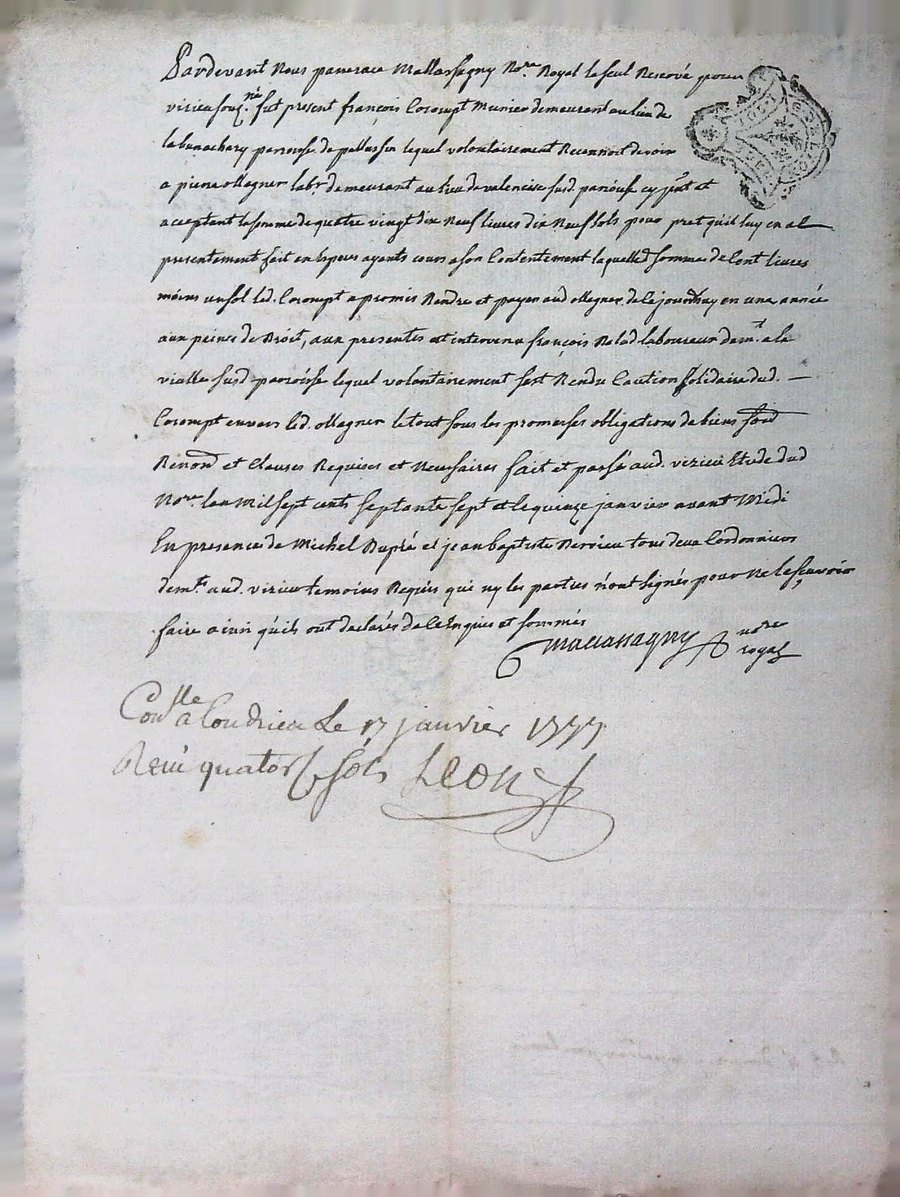 Pardevant Nous pancrace Mallassagny No.re Royal le seul Reservé pour
virieu souz.né fut present françois Corompt Munier demeurant au lieu de
paroisse de pellussin lequel volontairement Reconnoit devoir
a pierre Magner lab.r demeurant au lieu de valencise susd. paroisse cy p.nt et
acceptant la somme de quatre vingt dix Neuf livres dix Neuf sols pour pret qu'il luy en a
presentement fait en Especes ayants cours a son Contentement laquelle d. somme de Cent livres
moins un sol led. Corompt a promis Rendre et payer aud. Magner de ce jourdhuy en une année
aux peines de Droit, aux presentes est intervenu françois laboureur dem.t a la
vialle susd. paroisse lequel volontairement sest Rendu Caution solidaire dud. —
Corompt envers led. Magner le tout sous les promesses obligations de biens
Renond et Clauses Requises et Necessaires fait et passé aud. virieu Etude dud
No.re lan Mil sept cents septante sept et le quinze janvier avant Midi
En presence de Michel Dupré et jean baptiste Dervieu tous deux Cordonniers
dem.ts aud. virieu temoins Requis qui ny les parties n'ont signés pour ne le sçavoir
faire ainsi qu'ils ont declarés de ce Enquis et sommés
Mallassagny no.re
royal
Con.lle a Condrieu Le 17 janvier 1777
Reçu quatorze sols Leon